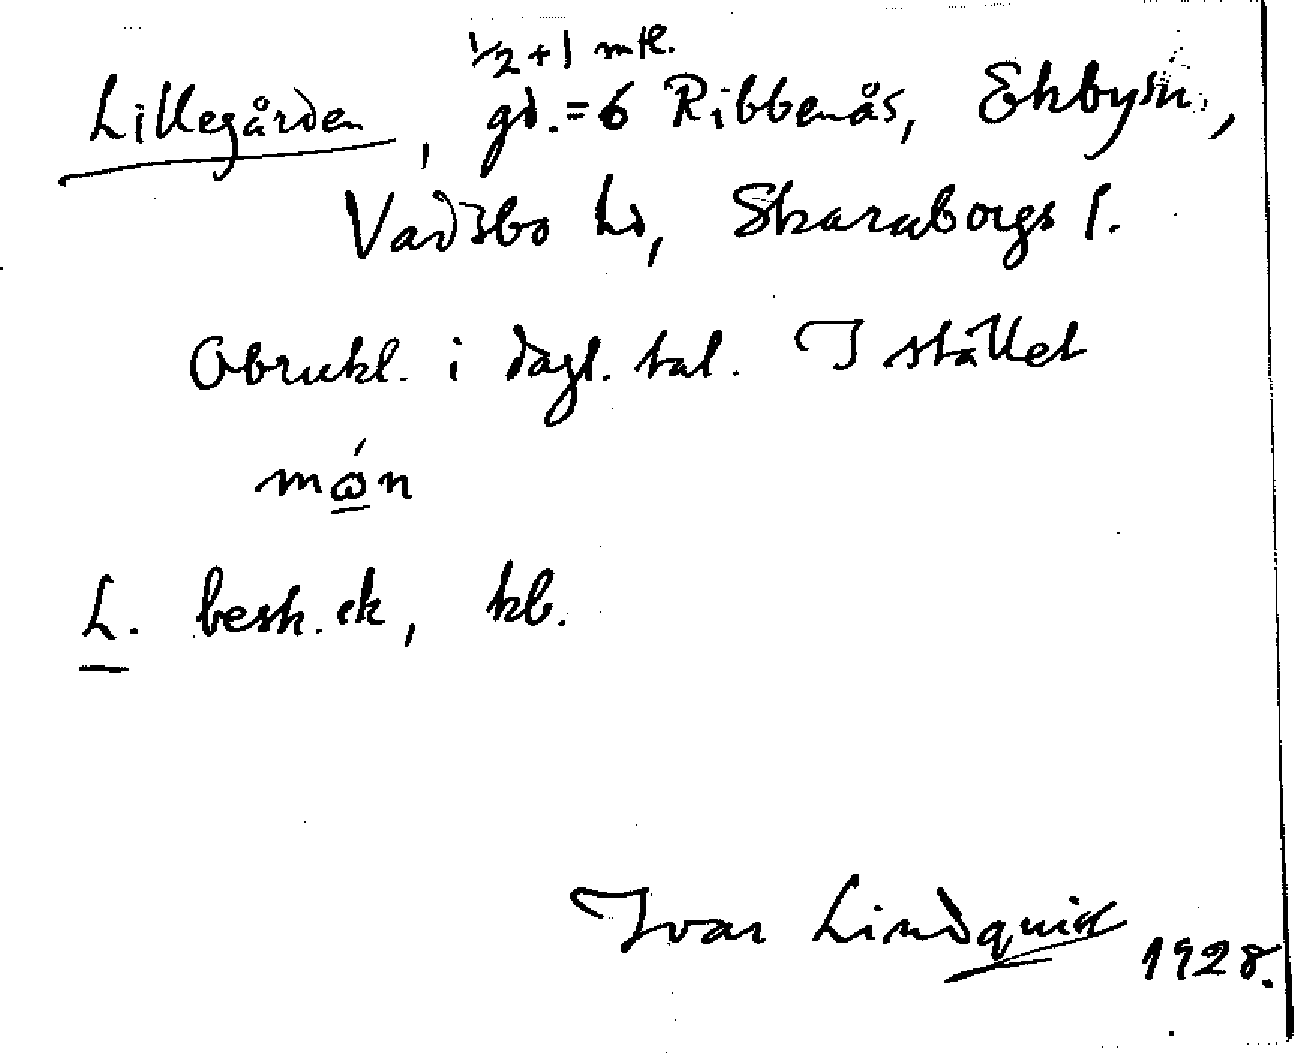 1/2 + 1 mtl.
Lillegården, gd. = 6 Ribbenås, Ekby sn.,
Vadsbo hd, Skaraborgs l.
Obrukl. i dagl. tal. I stället
mǿn
L. besk. ek, kb.
Ivar Lindquist 1928.